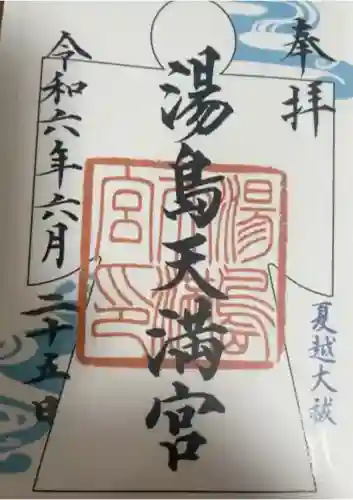 奉拝
夏越大祓
湯島天満宮
令和六年六月二十五日
湯島天満宮印